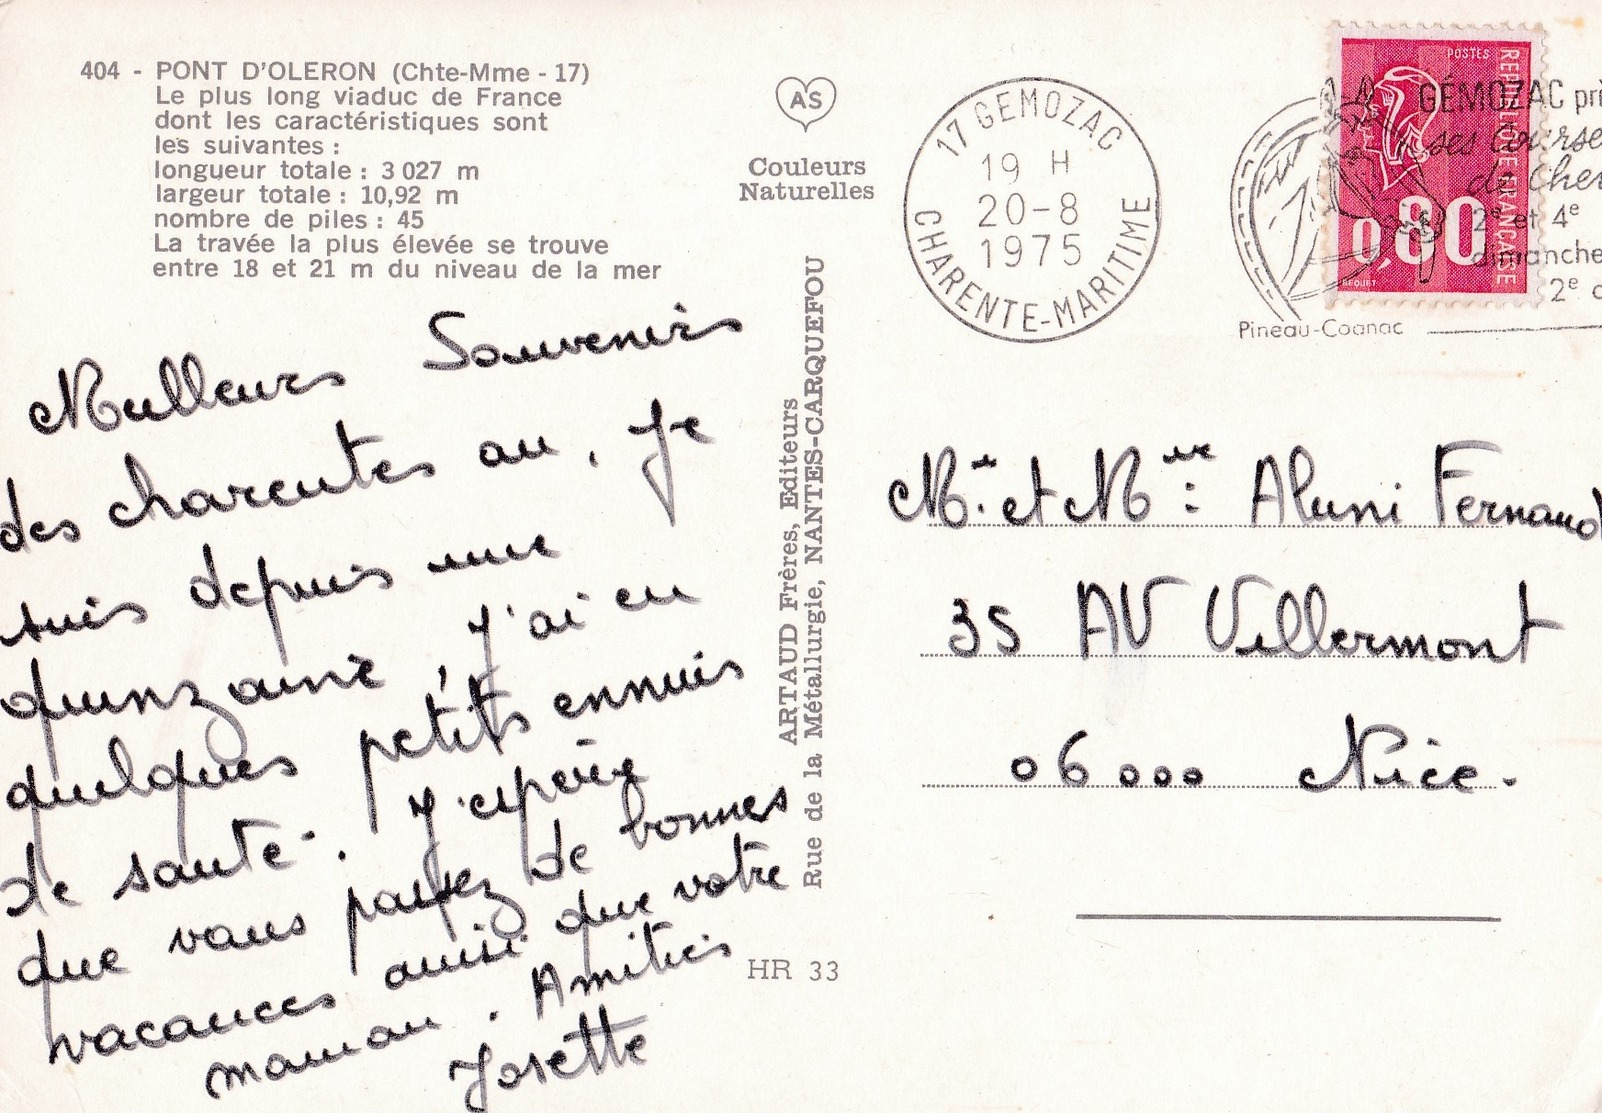 404 - PONT D'OLERON (Chte-Mme - 17)
Le plus long viaduc de France
dont les caractéristiques sont
les suivantes :
longueur totale : 3 027 m
largeur totale : 10,92 m
nombre de piles : 45
La travée la plus élevée se trouve
entre 18 et 21 m du niveau de la mer
Meilleurs Souvenirs
des charentes où, Je
suis depuis une
quinzaine, j'ai eu
quelques petits ennuis
de santé. J'espère
que vous passez de bonnes
vacances ainsi que votre
maman. Amitiés
Josette
AS
Couleurs
Naturelles
ARTAUD Frères, Editeurs
Rue de la Métallurgie, NANTES-CARQUEFOU
HR 33
17 GEMOZAC
19 H
20-8
1975
CHARENTE-MARITIME
POSTES
REPUBLIQUE FRANÇAISE
0,80
BEQUET
GÉMOZAC prè
ses Course
de Chev
2e et 4e
dimanche
2e
Pineau-Cognac
Mr. et Mme : Aluni Fernand
35 AV Villermont
06000 Nice.